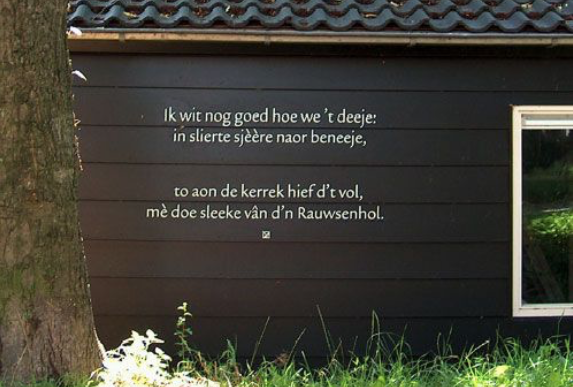 Ik wit nog goed hoe we 't deeje:
in slierte sjèère naor beneeje,
to aon de kerrek hief d't vol,
mè doe sleeke vân d'n Rauwsenhol.